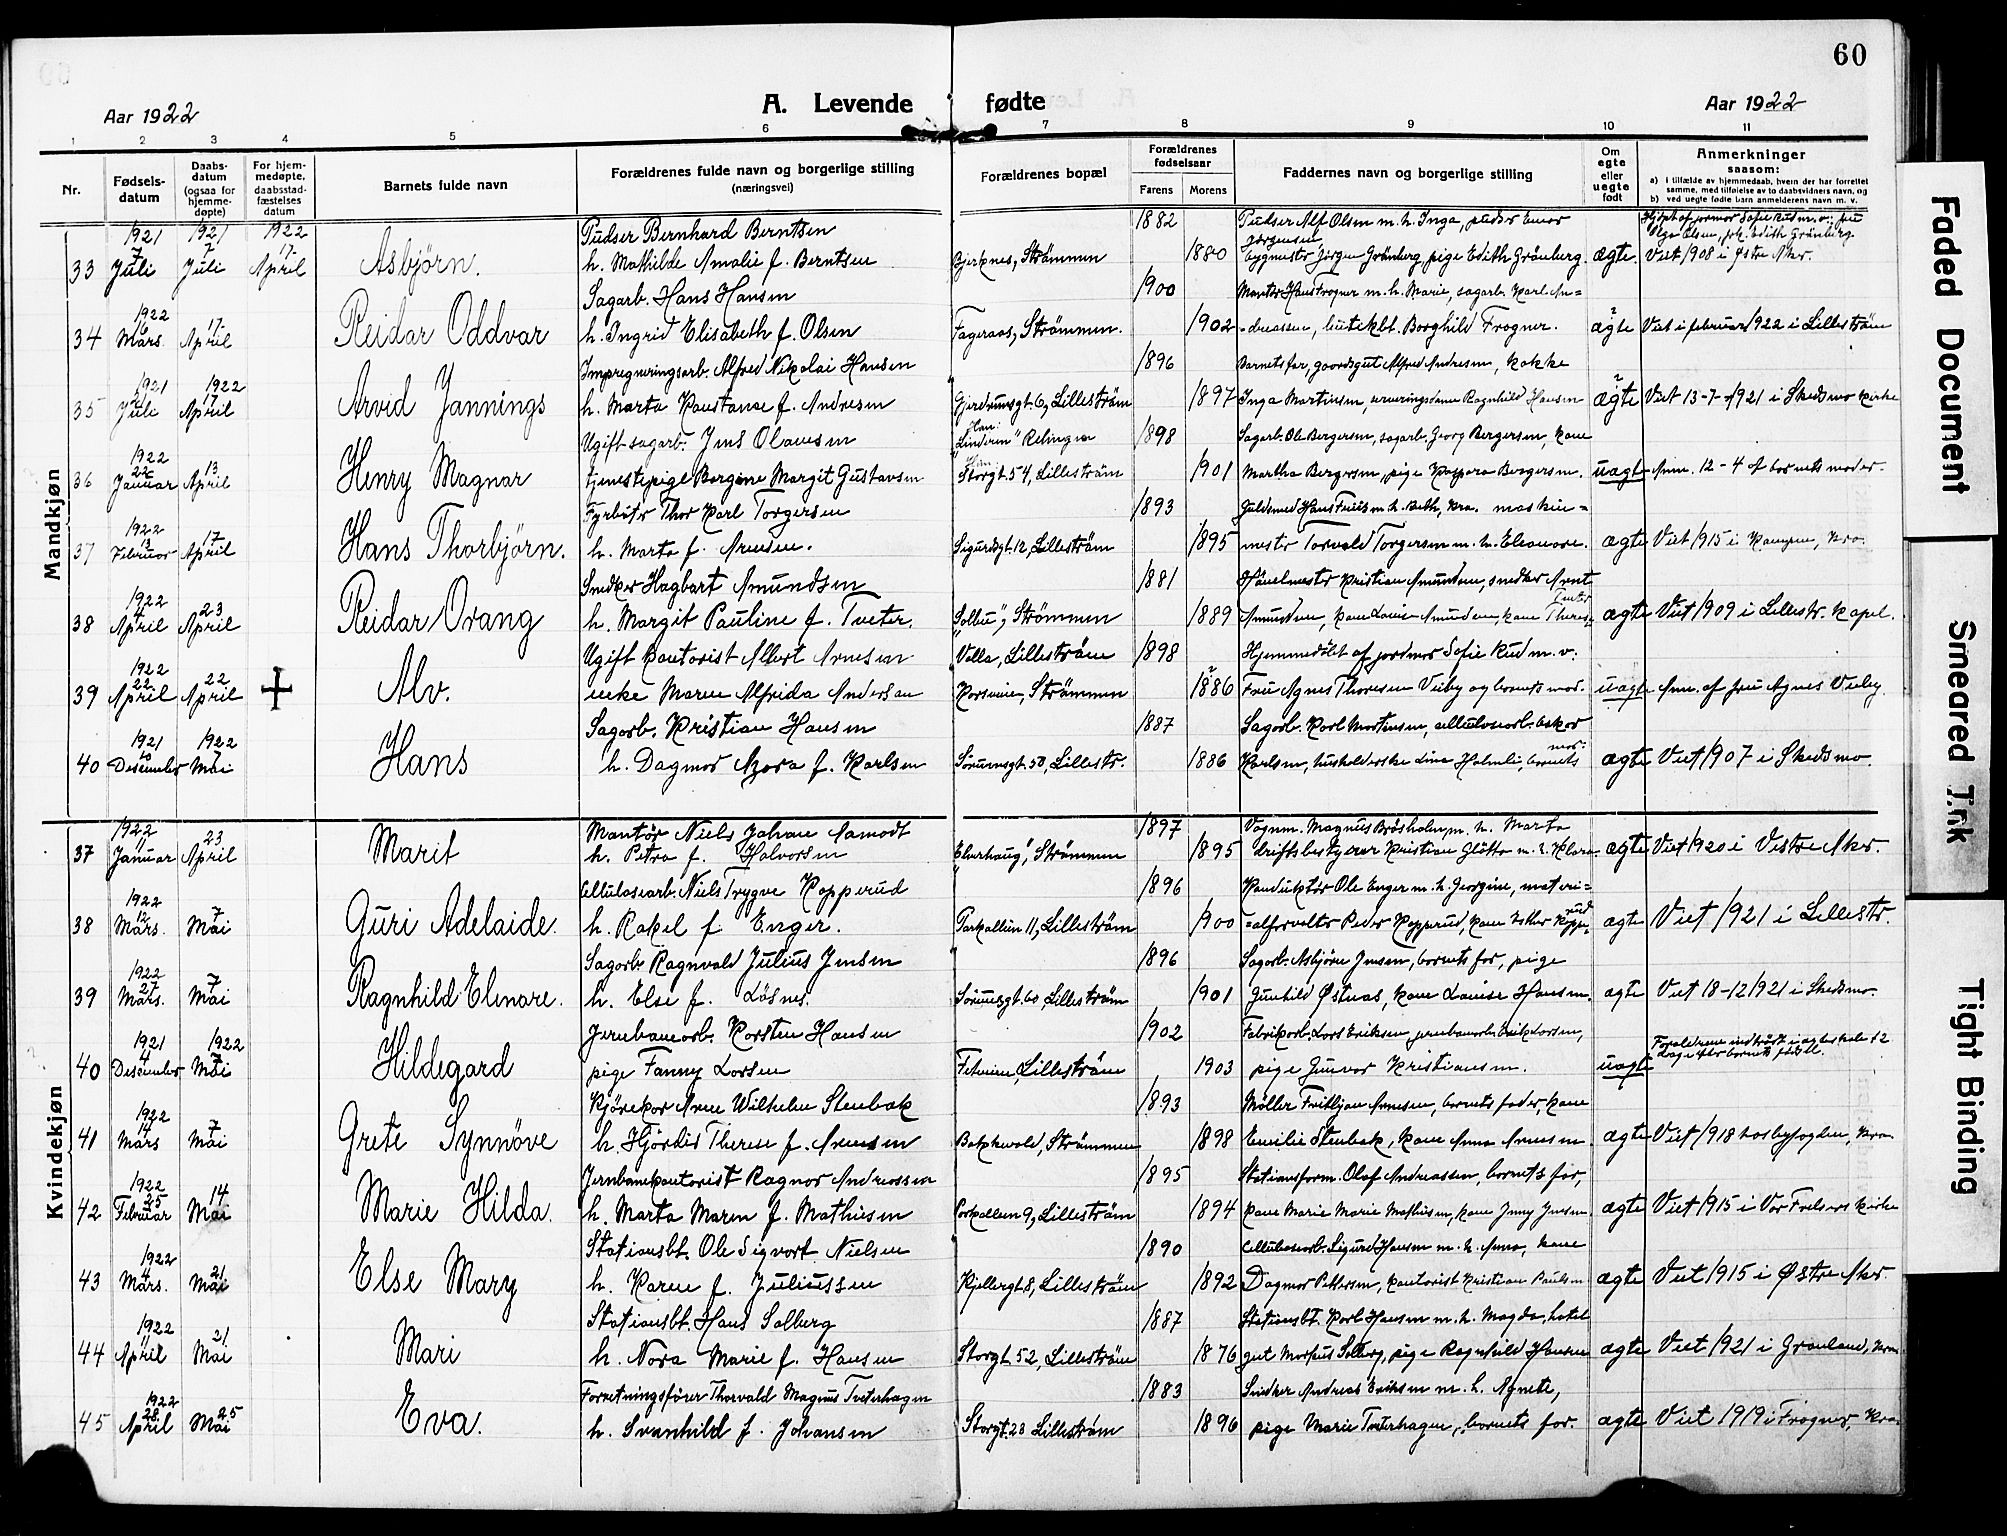 60
Aar 1922
A. Levende fødte
Aar 1922
1 2 3 4 5 6 7 8 9 10 11
Nr.
Fødsels-
datum
Daabs-
datum
(ogsaa for
hjemme-
døpte)
For hjem-
medøpte,
daabsstad-
fæstelses
datum
Barnets fulde navn
Forældrenes fulde navn og borgerlige stilling
(næringsvei)
Forældrenes bopæl
Forældrenes
fødselsaar
Farens Morens
Faddernes navn og borgerlige stilling
Om
egte
eller
uegte
født
Anmerkninger
saasom:
a) i tilfælde av hjemmedaab, hvem der har forrettet
samme, med tilføielse av to daabsvidners navn, og
b) ved uegte fødte barn anmelderens navn m. v.
Mandkjøn
1921 1921 1922 Pudser Bernhard Berntsen 1882 Pudser Alf Olsen m. h. Inga, pudser
33 7 Juli 7 Juli 17 April Asbjörn. h. Mathilde Amalie f. Berntsen Bjerknes, Strömmen 1880 bygmester Jörgen Grönberg, pige Edith Grönberg. ægte. Viet 1908 i Østre Aker.
1922 Sagarb. Hans Hansen 1900 Montör Hans Frogner m. h. Marie, sagarb. Karl An=
34 6 Mars. 17 April Reidar Oddvar h. Ingrid Elisabeth f. Olsen Fageraas, Strömmen. 1902 =dreassen, butikbt. Borghild Frogner. ægte Viet i februar 1922 i Lilleström
1921 1922 Impregneringsarb. Alfred Nikolai Hansen 1896 Barnets far, gaardsgut Alfred Andresen, kokke
35 21 Juli 17 April Arvid Jannings h. Marta Konstanse f. Andresen Gjerdrumsgt. 6, Lilleström 1897 Inga Martinsen, serveringsdame Ragnhild Hansen ægte Viet 13-7-1921 i Skedsmo kirke
1922 Ugift sagarb. Jens Olausen "Linderen" Relingen 1898 Sagarb. Ole Bergersen, sagarb. Georg Bergersen, kone
36 22 Januar 13 April Henry Magnar tjenestepige Borgine Margit Gustavsen Storgt. 54, Lilleström 1901 Martha Bergersen, pige Kaspara Bergersen. uægte Anm. 12-4 af barnets moder.
1922 Fyrböter Thor Karl Torgersen 1893 Guldsmed Hans Friis m. h. Beth, Kra. maskin=
37 13 Februar 17 April Hans Thorbjörn. h. Marta f. Arnesen. Sigurdsgt. 12, Lilleström 1895 mester Torvald Torgersen m. h. Eleonore. ægte Viet 1915 i Kampen, Kra.
1922 Snedker Hagbart Amundsen 1881 Hövelmester Kristian Amundsen, snedker Arnt
38 4 April 23 April Reidar Orang h. Margit Pauline f. Tveter. "Solbu", Strömmen 1889 Amundsen, kone Lovise Amundsen, kone Therese Tveter ægte Viet 1909 i Lillestr. kapel.
1922 Ugift kontorist Albert Arnesen Volla, Lilleström 1898 Hjemmedöbt af jordmor Sofie Rud m. v:
39 22 April 22 April + Alv. enke Maren Alfrida Andersen Korsveien, Strömmen 1886 Fru Agnes Thoresen Veiby og barnets mor. uægte Anm. af fru Agnes Veiby.
1921 1922 Sagarb. Kristian Hansen 1887 Sagarb. Karl Mortinsen, cellulosearb. Oskar
40 10 Desember 7 Mai Hans h. Dagmar Azora f. Karlsen Sörumsgt. 50, Lillestr. 1886 Karlsen, husholderske Lina Holmli, barnets mor. ægte Viet 1907 i Skedsmo.
Kvindekjøn
1922 Montör Niels Johan Aamodt 1897 Vognm. Magnus Bråsholen m. h. Marta
37 1 Januar 23 April Marit h. Petra f. Halvorsen "Elverhaug", Strömmen 1895 driftsbestyrer Kristian Glötta m. h. Klara. ægte Viet 1920 i Vestre Aker.
1922 Cellulosearb. Niels Trygve Kopperud 1896 Konduktör Ole Enger m. h. Georgine, materi=
38 12 Mars. 7 Mai Guri Adelaide. h. Rakel f. Enger. Parkalleen 11, Lilleström 1900 =alforvalter Peder Kopperud, kone Ester Kopperud ægte Viet 1921 i Lillestr.
1922 Sagarb. Ragnvald Julius Jensen 1896 Sagarb. Asbjörn Jensen, barnets far, pige
39 27 Mars. 7 Mai Ragnhild Elenore. h. Else f. Lösnes. Sörumsgt. 60, Lilleström 1901 Gunhild Østnas, kone Louise Hansen. ægte Viet 18-12 1921 i Skedsmo.
1921 1922 Jernbanearb. Karsten Hansen 1902 Fabrikarb. Lars Eriksen, jernbanearb. Erik Larsen,
40 4 Desember 7 Mai Hildegard pige Fanny Larsen Fetveien, Lilleström 1903 pige Gunvor Kristiansen. uægte Forældrene indtraadt i ægteskab 12 dage efter barnets fødsel.
1922 Kjörekar Arne Wilhelm Stenbak 1893 Möller Fritjon Arnesen, barnets fader, kone
41 14 Mars 7 Mai Grete Synnöve h. Hjördis Therese f. Arnesen Bakkevold, Strömmen 1898 Emilie Stenbak, kone Anna Arnesen. ægte Viet 1918 hos byfogden, Kra.
1922 Jernbanekontorist Ragnar Andreassen 1895 Stationsform. Olaf Andreassen, barnets far,
42 25 Februar 14 Mai Marie Hilda. h. Marta Maren f. Mathisen Parkalleen 9, Lilleström 1894 kone Marie Marie Mathisen, kone Jenny Jensen. ægte Viet 1915 i Vor Frelsers kirke
1922 Stationsbt. Ole Sigvart Nielsen 1890 Cellulosearb. Sigurd Hansen m. h. Anna, kone
43 4 Mars. 21 Mai Else Mary h. Karen f. Juliussen Kjellergt 8, Lilleström 1892 Dagmar Pettersen, kontorist Kristian Paulsen ægte Viet 1915 i Østre Aker.
1922 Stationsbt. Hans Solberg 1887 Stationsbt. Karl Hansen m. h. Magda, hotel
44 11 April 21 Mai Mari h. Nora Marie f. Hansen Storgt. 52, Lilleström 1876 gut Markus Solberg, pige Ragnhild Hansen ægte Viet 1921 i Grønland, Kra
1922 Forretningsförer Thorvald Magnus Tveterhagen 1883 Snedker Andreas Eriksen m. h. Agnete,
45 28 April 25 Mai Eva. h. Svanhild f. Johansen Storgt. 28 Lilleström 1896 pige Marie Tveterhagen, barnets far. ægte Viet 1919 i Frogner, Kra.
Faded Document
Smeared Ink
Tight Binding